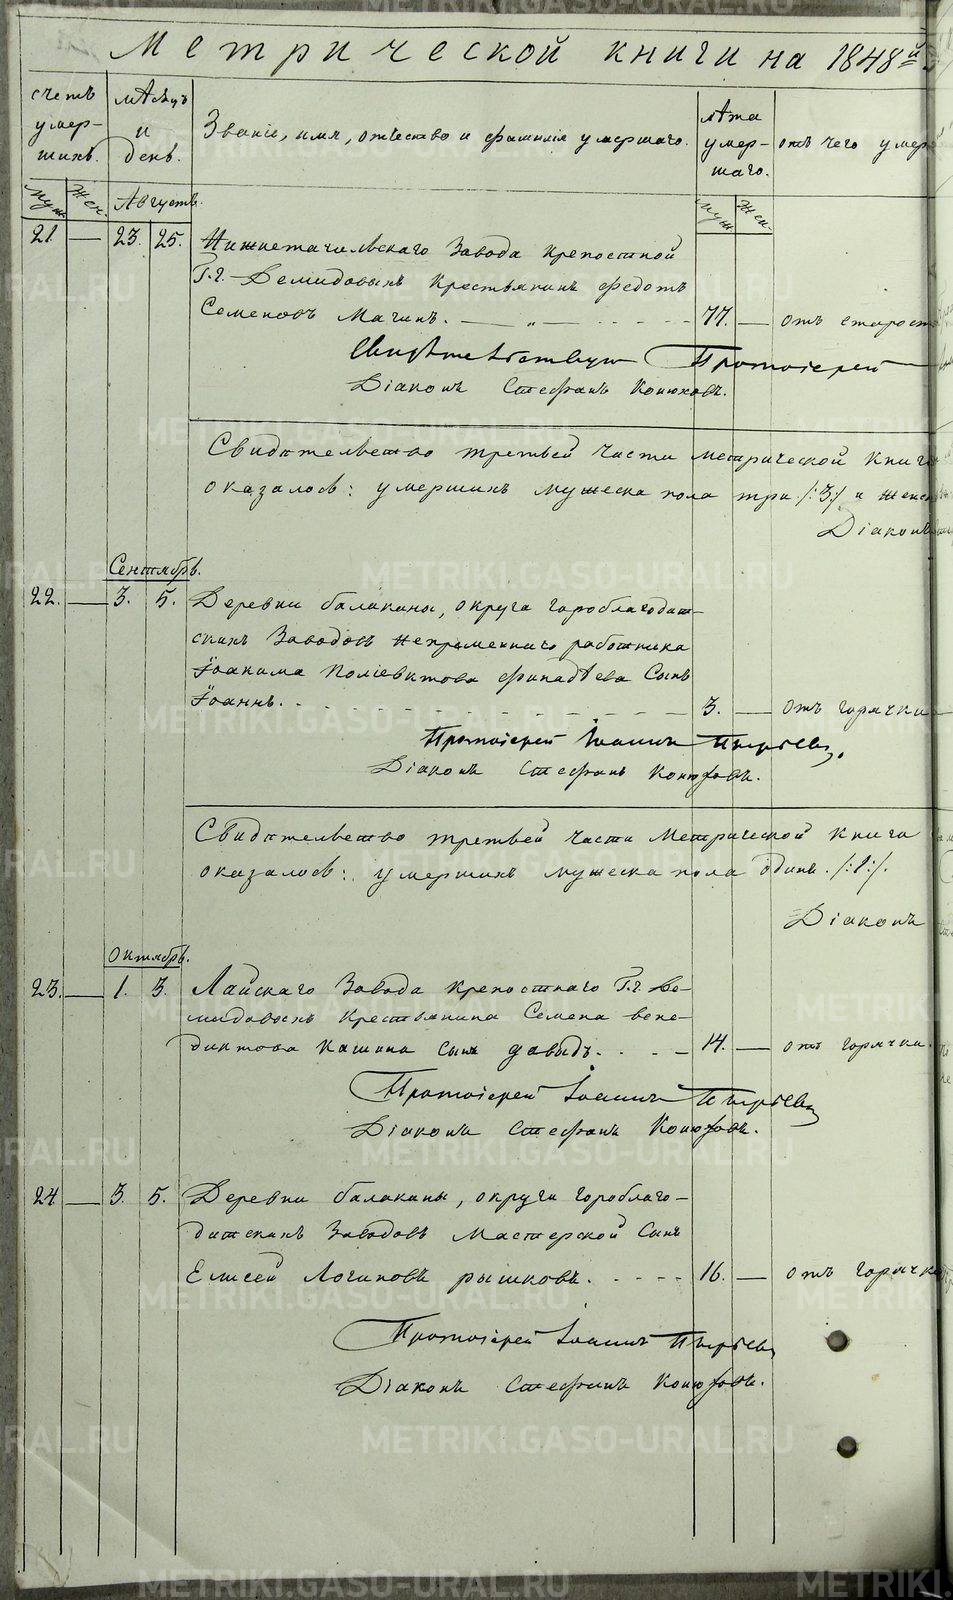 Метрической книги на 1848й
счетъ умер- шихъ.
мѣсяцъ и день.
Званіе, имя, отчество и фамилія умершаго.
лѣта умер- шаго.
отъ чего умер
муж. жен. Августъ. муж. жен.
21 — 23. 25. Нижнетагильскаго Завода крепостной
Г.г. Демидовыхъ крестьянинъ Федотъ
Семеновъ Магинъ. — „ — 77. — отъ старост
Свидѣтельствую Протоіерей
Діаконъ Стефанъ Конюховъ.
Свидѣтельство третьей части метрической книги
оказалось: умершихъ мужеска пола три /:3:/ и женс
Діаконъ
Сентябрь.
22. — 3. 5. Деревни балакины, округа гороблагодат-
скихъ Заводовъ непременнаго работника
Іоакима Поліевктова Финадѣева Сынъ
Іоаннъ. 3. — отъ горячки
Протоіерей Іоаннъ Пырьевъ.
Діаконъ Стефанъ Конюховъ.
Свидѣтельство третьей части Метрической книги
оказалось: умершихъ мужеска пола одинъ. /:1:/.
Діаконъ
Октябрь.
23. — 1. 3. Лайскаго Завода крепостнаго Г.г. Де-
мидовыхъ крестьянина Семена вене-
диктова Кашина сынъ давыдъ. 14. — отъ горячки.
Протоіерей Іоаннъ Пырьевъ
Діаконъ Стефанъ Конюховъ.
24 — 3. 5. Деревни балакины, округи гороблаго-
датскихъ Заводовъ Мастерской Сынъ
Елисей Логиновъ рышковъ. 16. — отъ горячк
Протоіерей Іоаннъ Пырьевъ
Діаконъ Стефанъ Конюховъ.
METRIKI.GASO-URAL.RU